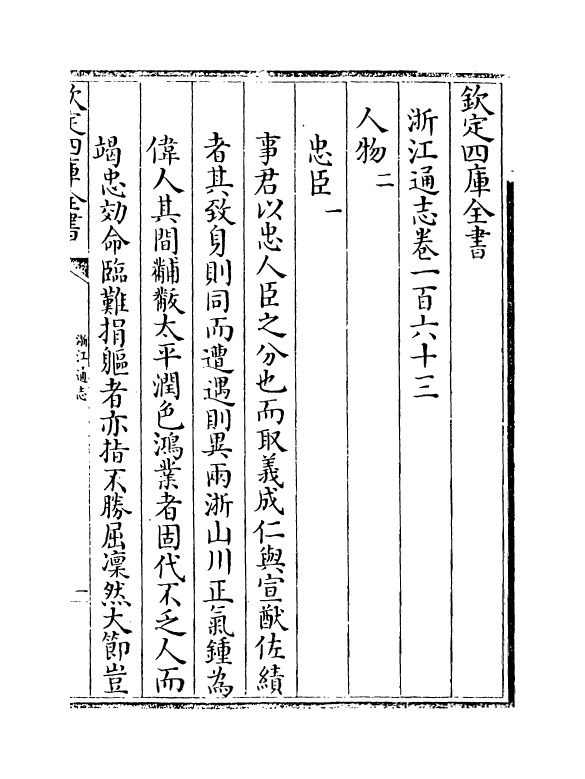 欽定四庫全書
浙江通志卷一百六十三
人物二
忠臣一
事君以忠人臣之分也而取義成仁與宣猷佐績
者其致身則同而遭遇則異兩浙山川正氣鍾為
偉人其間黼黻太平潤色鴻業者固代不乏人而
竭忠効命臨難捐軀者亦指不勝屈凜然大節豈
欽定四庫全書
浙江通志
一